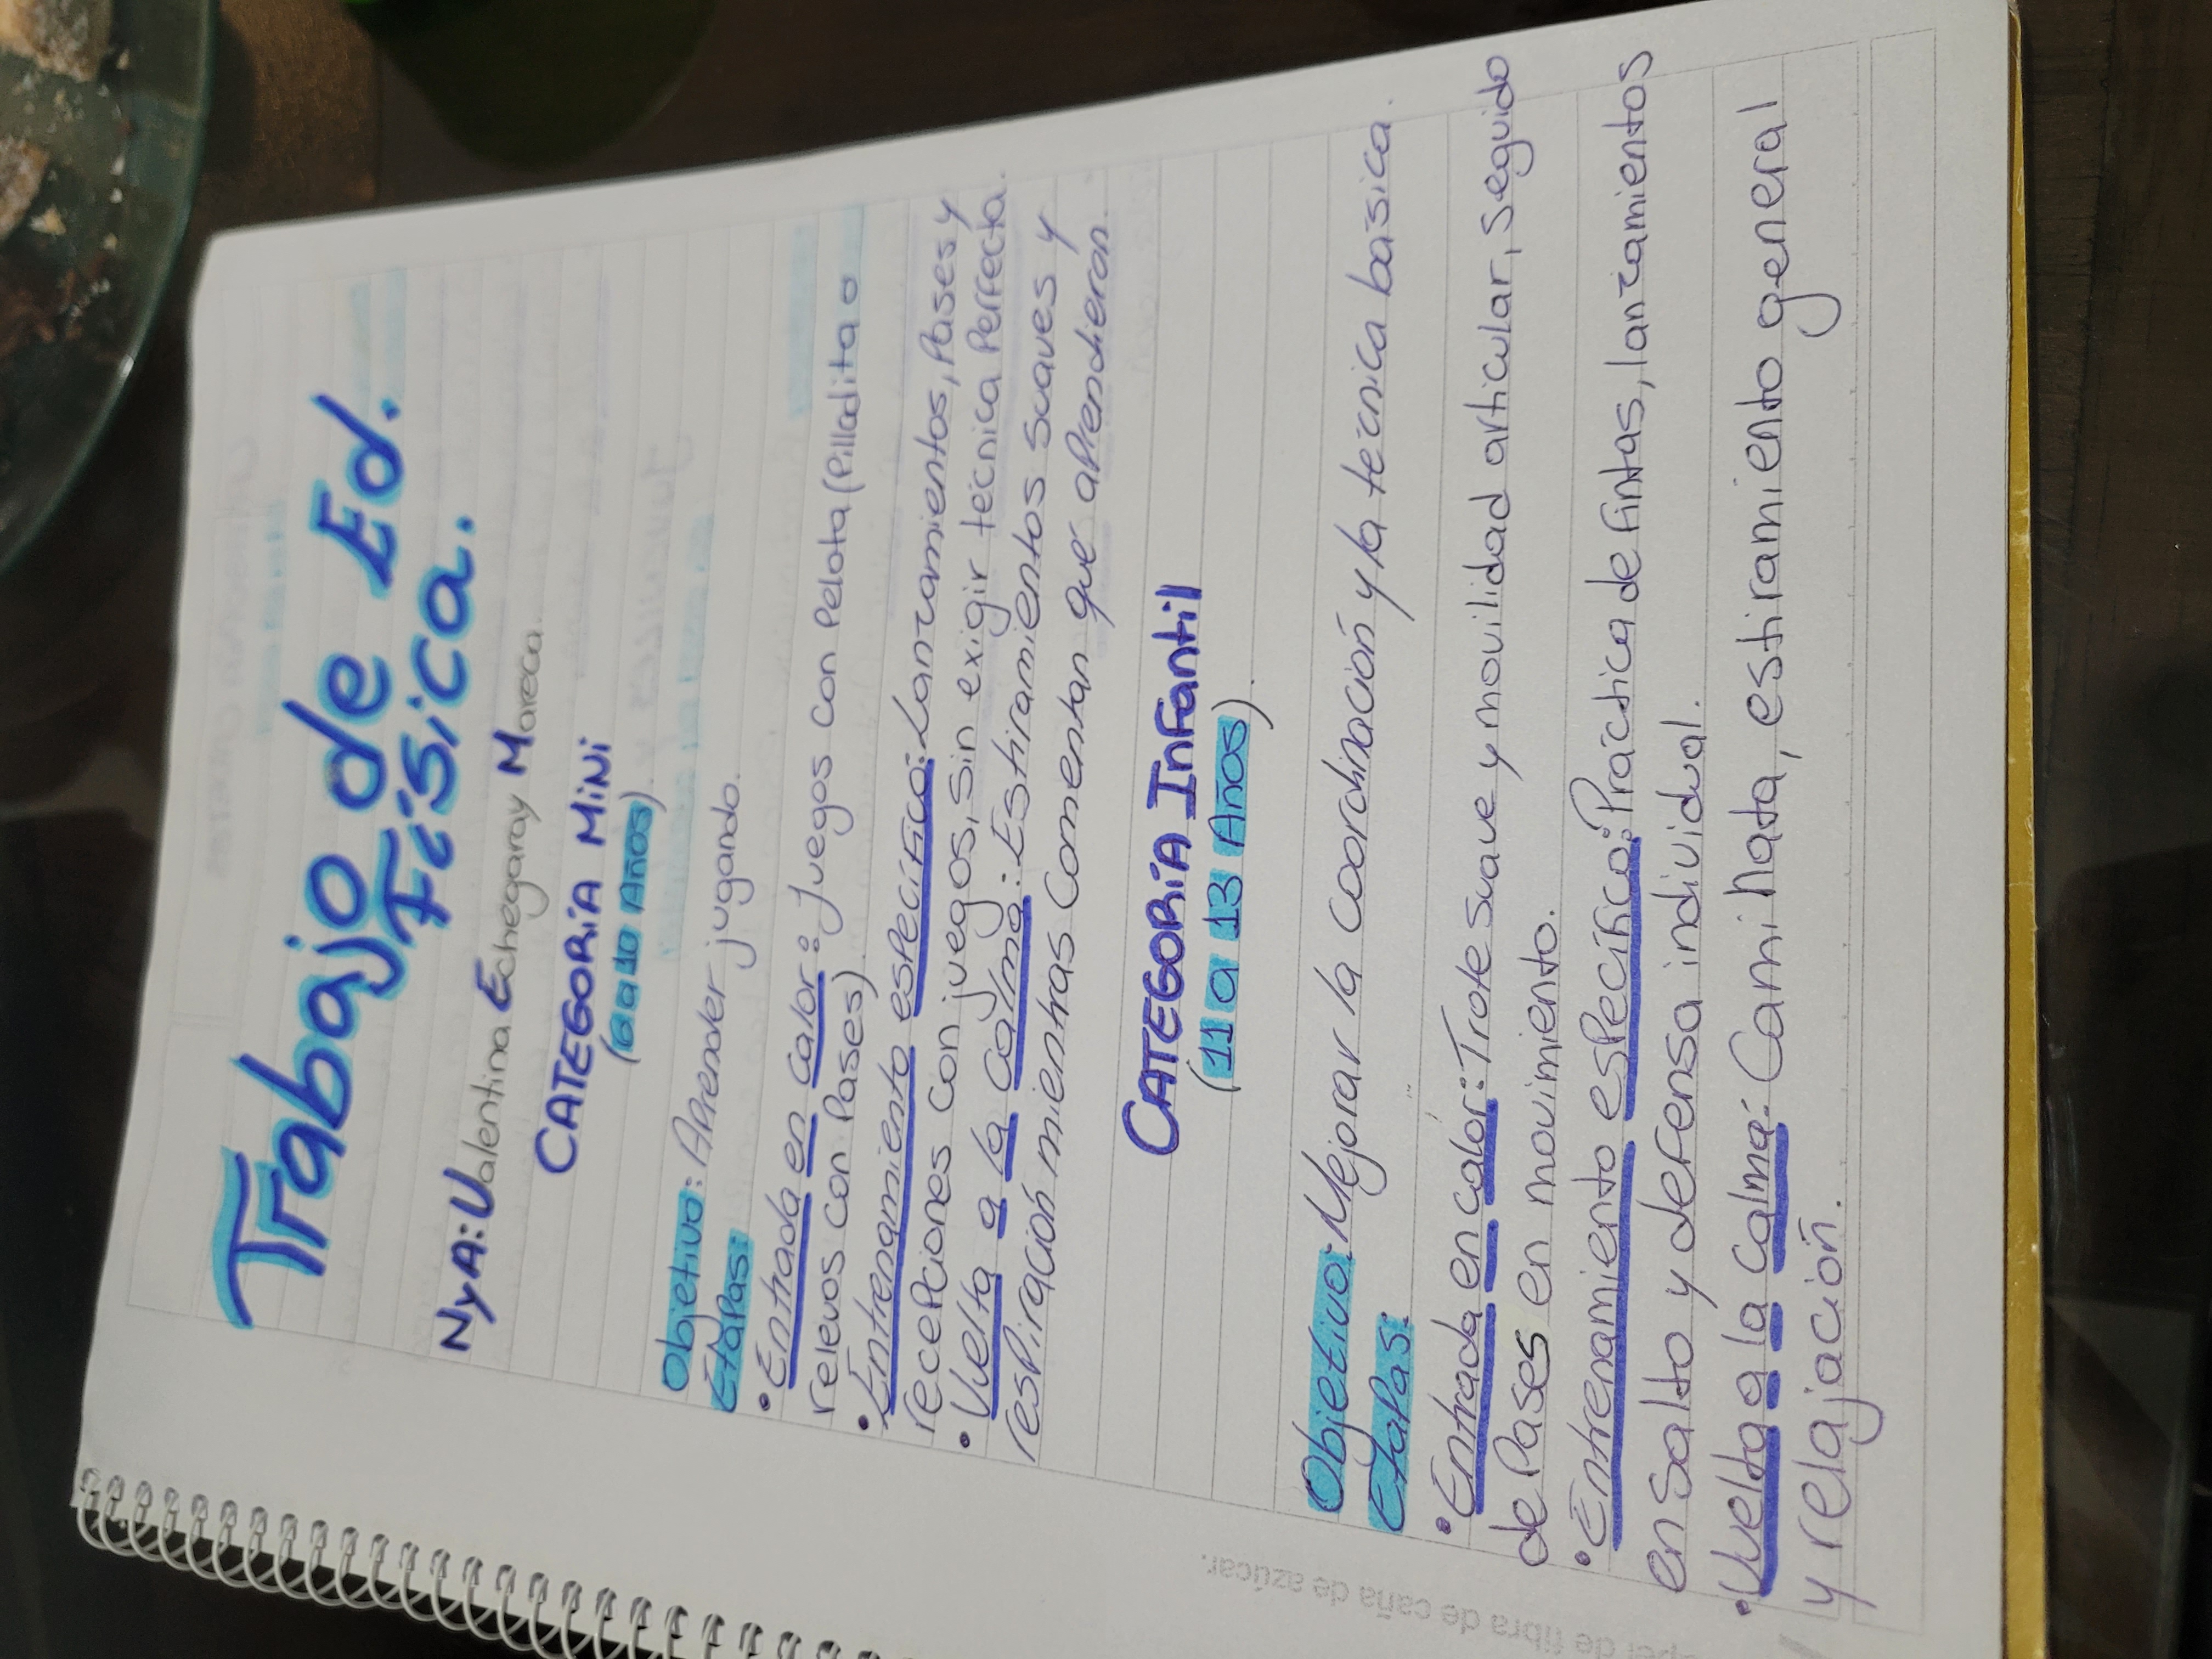 Trabajo de Ed.
Física.
NyA: Valentina Echegaray Mareca.
CATEGORÍA MiNi
(6 a 10 Años).
Objetivo: Aprender jugando.
Etapas:
• Entrada en calor: Juegos con Pelota (Pilladita o
relevos con Pases).
• Entrenamiento específico: Lanzamientos, Pases y
recepciones con juegos, sin exigir técnica Perfecta.
• Vuelta a la calma: Estiramientos suaves y
respiración mientras comentan qué aprendieron.
CATEGORÍA InFantil
(11 a 13 Años).
Objetivo: Mejorar la coordinación y la técnica basica.
Etapas:
• Entrada en calor: Trote suave y movilidad articular, seguido
de Pases en movimiento.
• Entrenamiento específico: Práctica de Fintas, lanzamientos
en salto y defensa individual.
• Vuelta a la calma: Caminata, estiramiento general
y relajación.
pel de fibra de caña de azúcar.